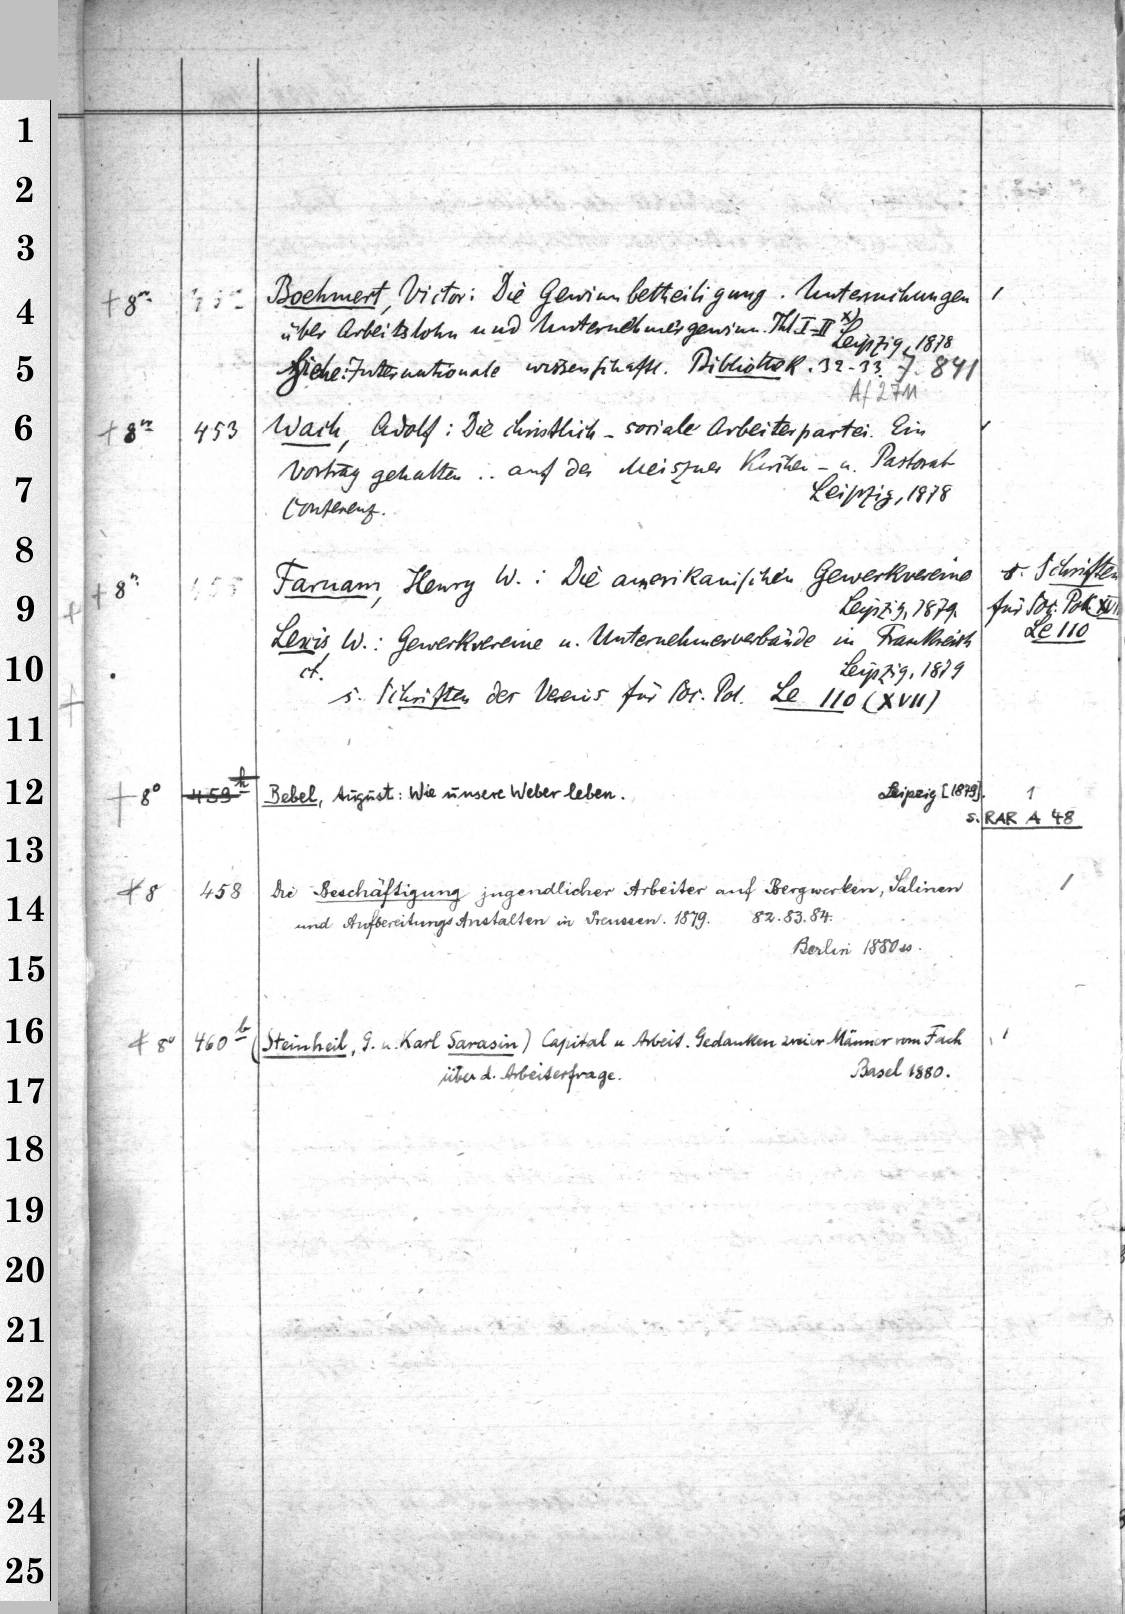 1
2
3
+ 8° Boehmert, Victor: Die Gewinnbetheiligung. Untersuchungen 1
4
über Arbeitslohn und Unternehmergewinn. Thl. I-II x)
Leipzig, 1878
5
Siehe: Internationale wissenschaftl. Bibliothek. 32-33. 7. 841
Af 2711
6 + 8° 453 Wach, Adolf: Die christlich-sociale Arbeiterpartei. Ein
Vortrag gehalten .. auf der Meiszner Kirchen- u. Pastoral-
7 Leipzig, 1878
Conferenz.
8
+ 8° Farnam, Henry W.: Die amerikanischen Gewerkvereine s. Schriften
9 Leipzig, 1879. für Soc. Pol. XVII
Le 110
Lexis, W.: Gewerkvereine u. Unternehmerverbände in Frankreich
10 cf. Leipzig, 1879
s. Schriften des Vereins für Soc. Pol. Le 110 (XVII)
11
12 + 8° 459 h Bebel, August: Wie unsere Weber leben. Leipzig [1879]. 1
s. RAR A 48
13
+ 8 458 Die Beschäftigung jugendlicher Arbeiter auf Bergwerken, Salinen 1
14
und Aufbereitungs Anstalten in Preussen. 1879. 82.83.84.
Berlin 1880 ss.
15
16 + 8° 460 b (Steinheil, G. u. Karl Sarasin) Capital u Arbeit. Gedanken zweier Männer vom Fach 1
über d. Arbeiterfrage. Basel 1880.
17
18
19
20
21
22
23
24
25